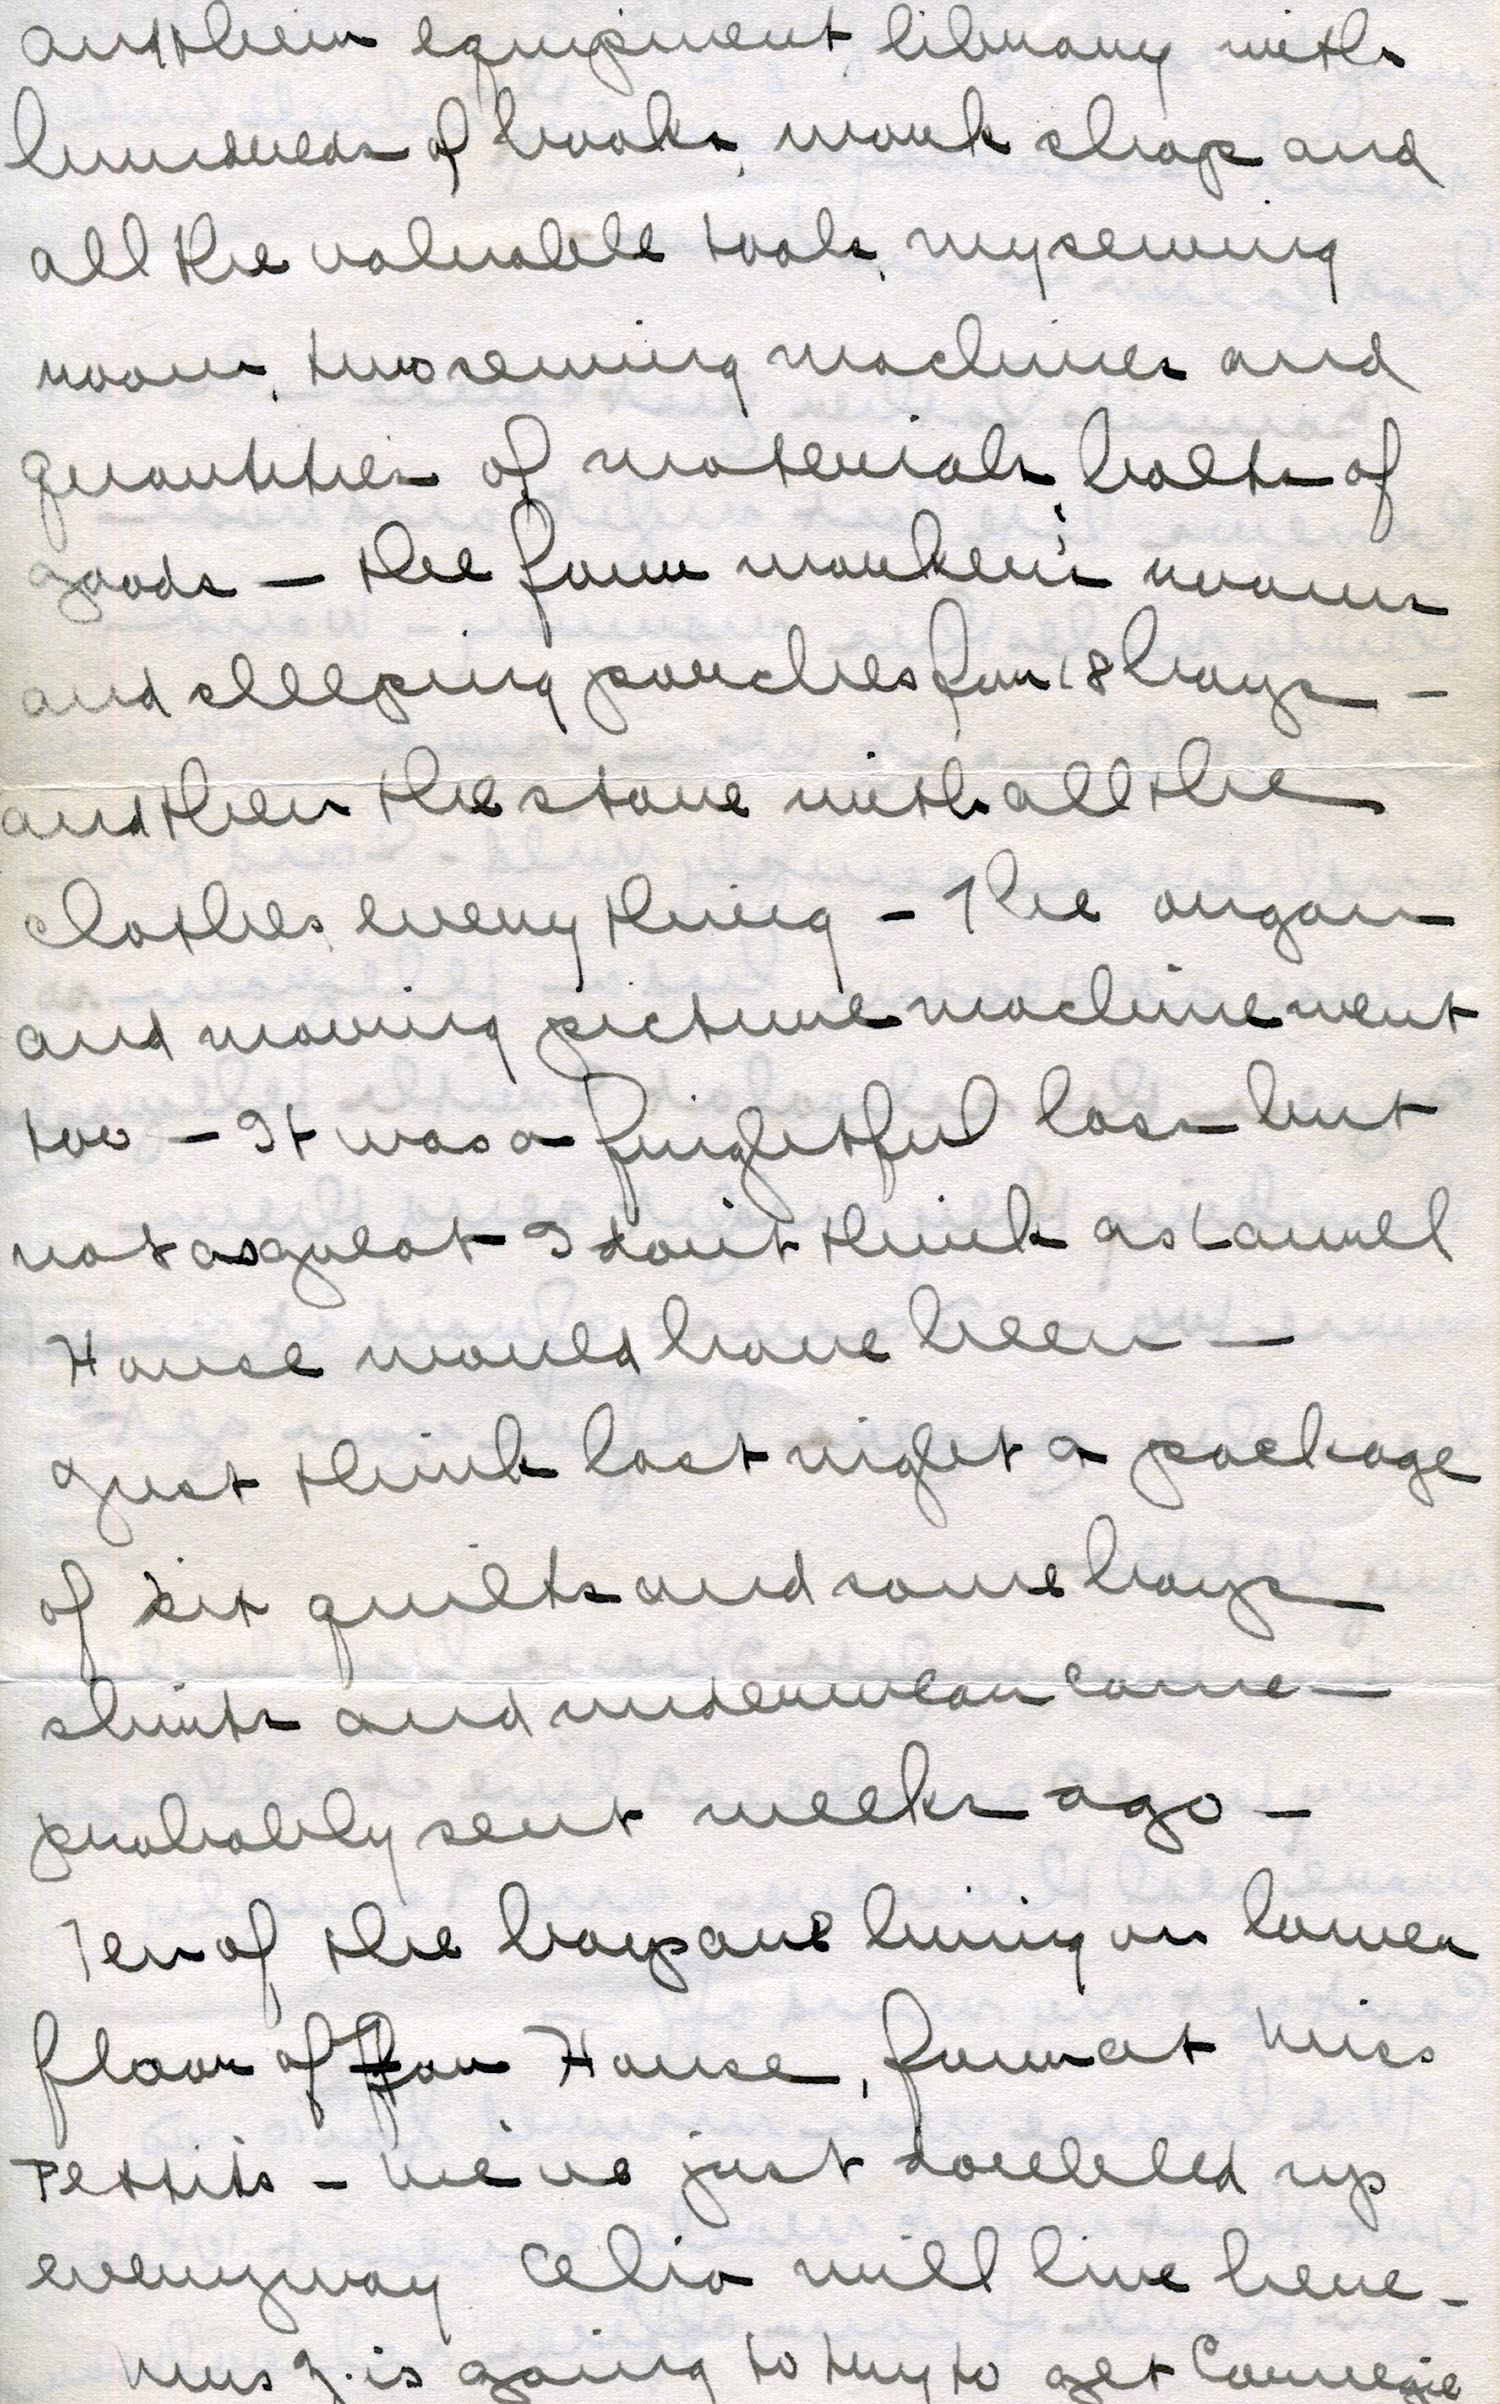 and their equipment, library with
hundreds of books, work shop and
all the valuable tools, my sewing
room, two sewing machines and
quantities of materials, bolts of
goods — the four workers' rooms
and sleeping porches for 18 boys —
and then the store with all the
clothes, everything — The organ
and moving picture machine went
too — It was a frightful loss but
not as great I don't think as Laurel
House would have been —
Just think last night a package
of six quilts and some boys
shirts and underwear came —
probably sent weeks ago —
Ten of the boys are living on lower
floor of Far House, four at Miss
Pettit's — We've just doubled up
everyway Celia will live here —
Mrs Z. is going to try to get Carnegie